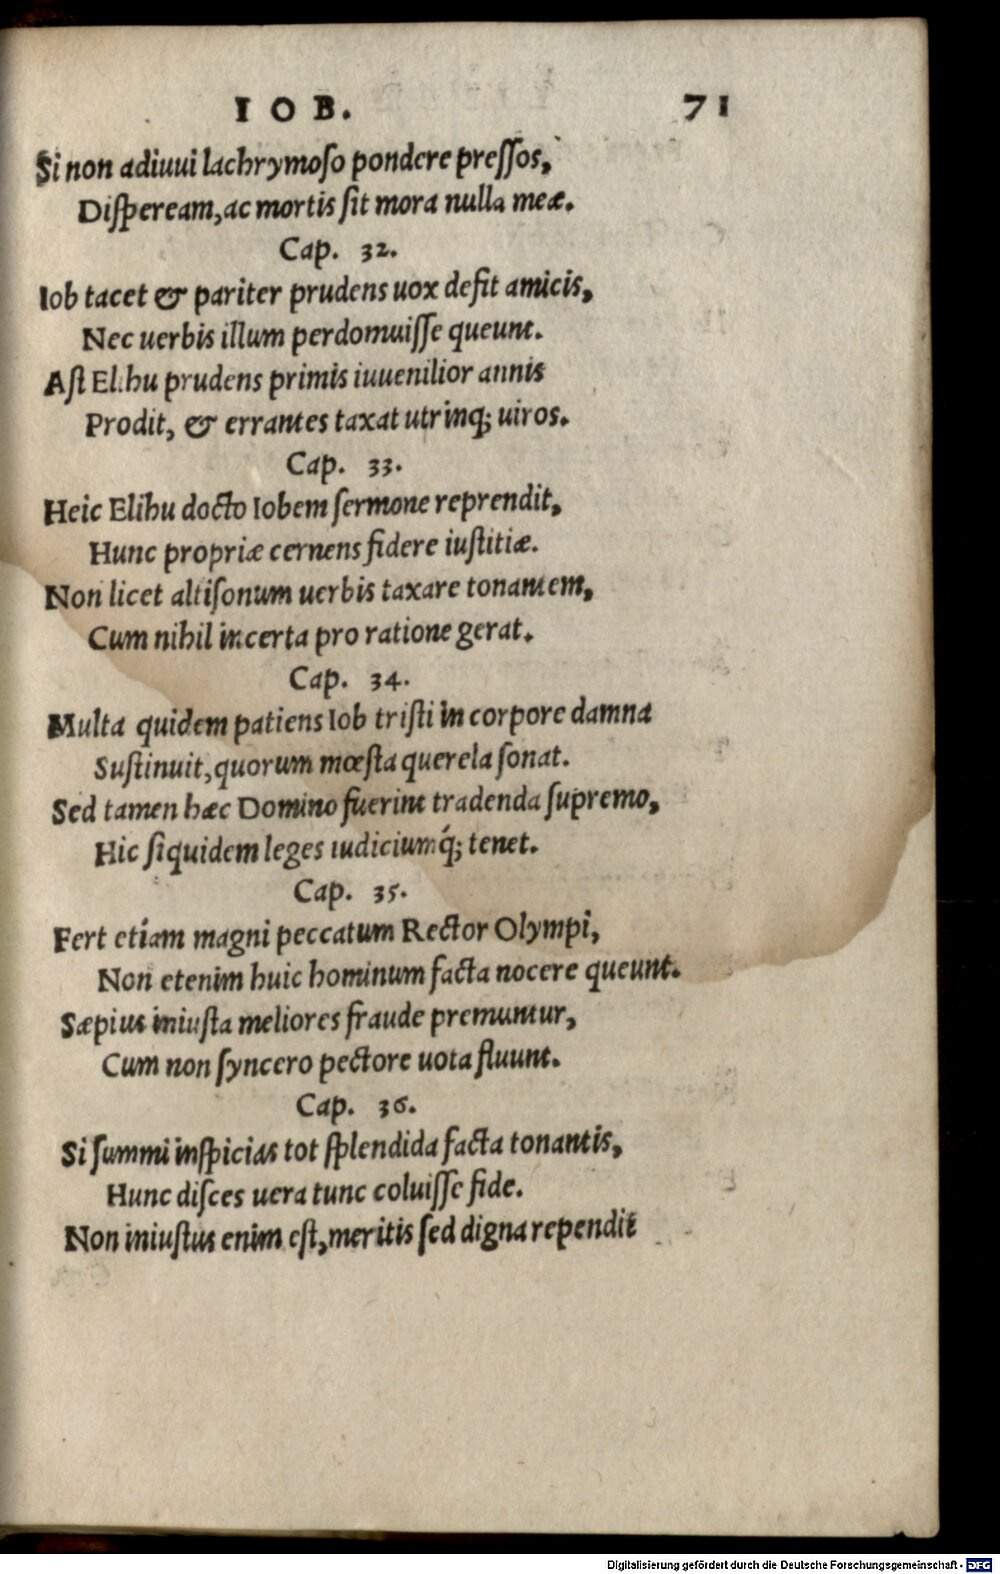 IOB. 71
Si non adiuui lachrymoso pondere pressos,
Dispeream, ac mortis sit mora nulla meæ.
Cap. 32.
Iob tacet & pariter prudens uox defit amicis,
Nec uerbis illum perdomuisse queunt.
Ast Elihu prudens primis iuuenilior annis
Prodit, & errantes taxat utrinq; uiros.
Cap. 33.
Heic Elihu docto Iobem sermone reprendit,
Hunc propriæ cernens fidere iustitiæ.
Non licet altisonum uerbis taxare tonantem,
Cum nihil incerta pro ratione gerat.
Cap. 34.
Multa quidem patiens Iob tristi in corpore damna
Sustinuit, quorum mœsta querela sonat.
Sed tamen hæc Domino fuerint tradenda supremo,
Hic siquidem leges iudiciumq́; tenet.
Cap. 35.
Fert etiam magni peccatum Rector Olympi,
Non etenim huic hominum facta nocere queunt.
Sæpius iniusta meliores fraude premuntur,
Cum non syncero pectore uota fluunt.
Cap. 36.
Si summi inspicias tot splendida facta tonantis,
Hunc disces uera tunc coluisse fide.
Non iniustus enim est, meritis sed digna rependit
Digitalisierung gefördert durch die Deutsche Forschungsgemeinschaft - DFG